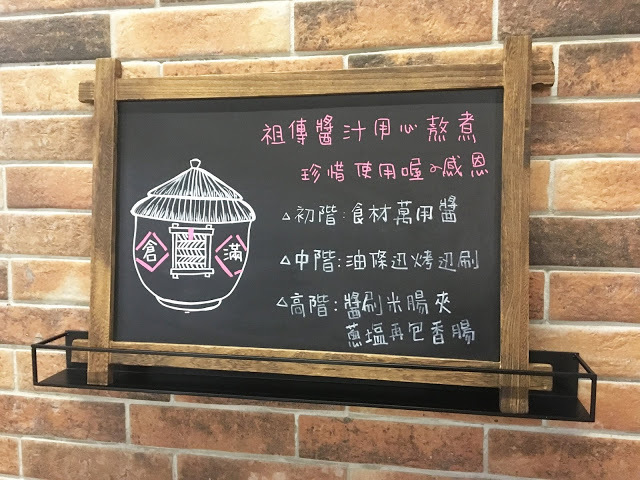 祖傳醬汁用心熬煮
珍惜使用喔~感恩
△初階：食材萬用醬
△中階：油條迅烤迅刷
△高階：醬刷米腸夾
蔥塩再包香腸
倉 滿